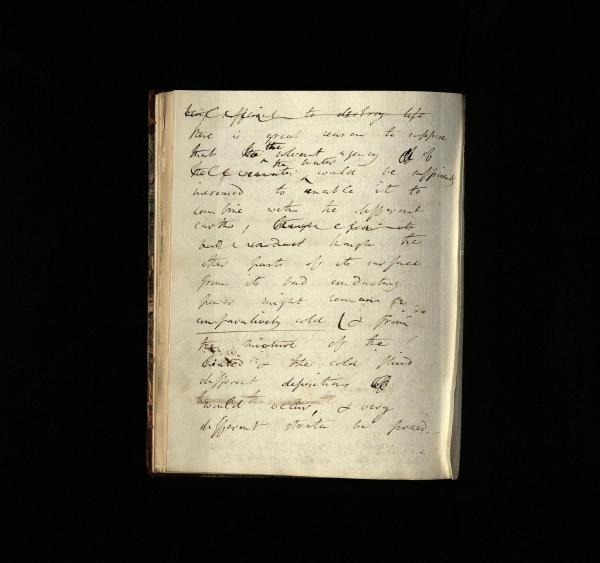 to destroy life
there is great reason to suppose
that the solvent agency of
the water would be sufficiently
increased to enable it to
combine with the different
earths,
though the
other parts of its surface
from its bad conducting
power might remain
comparatively cold & from
the mixture of the
heated & the cold fluid
different depositions
would occur, & very
different strata be formed.